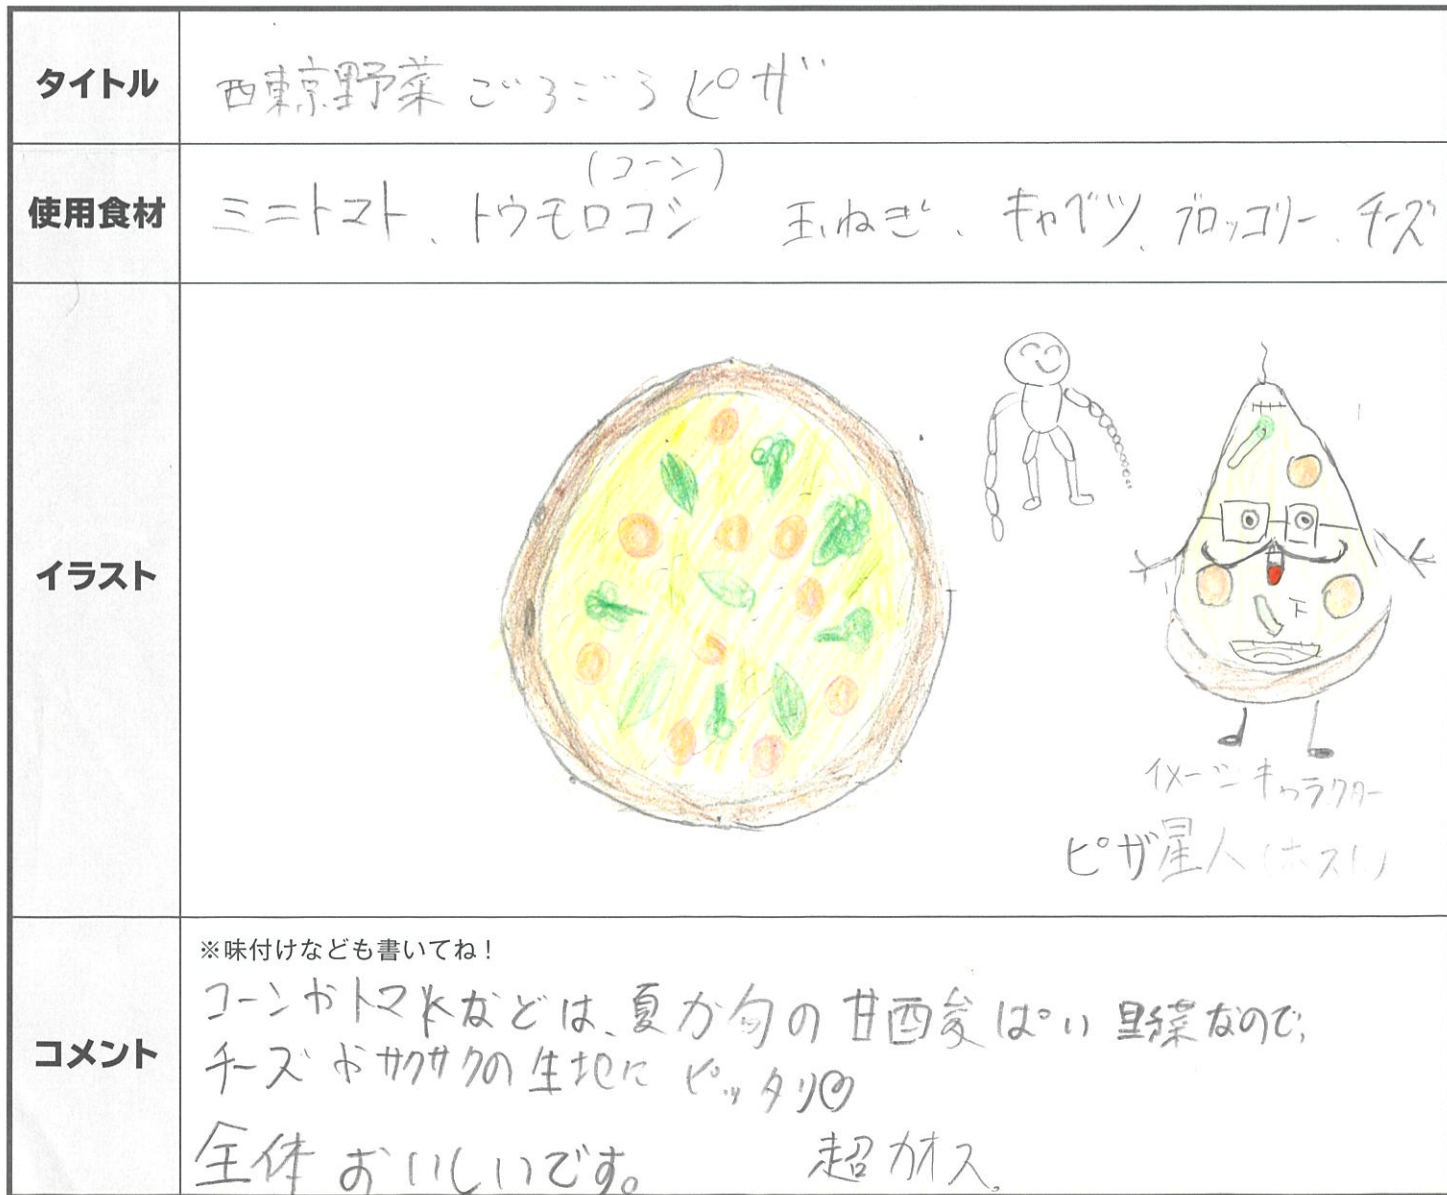 タイトル
西東京野菜ごろごろピザ
使用食材
(コーン)
ミニトマト、トウモロコシ 玉ねぎ、キャベツ、ブロッコリー、チーズ
イラスト
下
イメージキャラクター
ピザ星人(ホスト)
コメント
※味付けなども書いてね!
コーンやトマトなどは、夏が旬の甘酸ぱい野菜なので、
チーズやサクサクの生地にピッタリ
全体おいしいです。 超カオス。